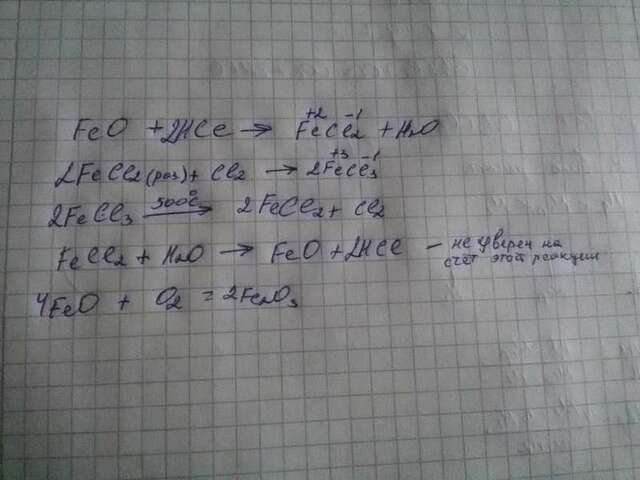 FeO + 2HCl → Fe⁺²Cl₂⁻¹ + H₂O
2FeCl₂(раз) + Cl₂ → 2Fe⁺³Cl₃⁻¹
2FeCl₃ 500°C → 2FeCl₂ + Cl₂
FeCl₂ + H₂O → FeO + 2HCl – не уверен на
счёт этой реакции
4FeO + O₂ = 2Fe₂O₃